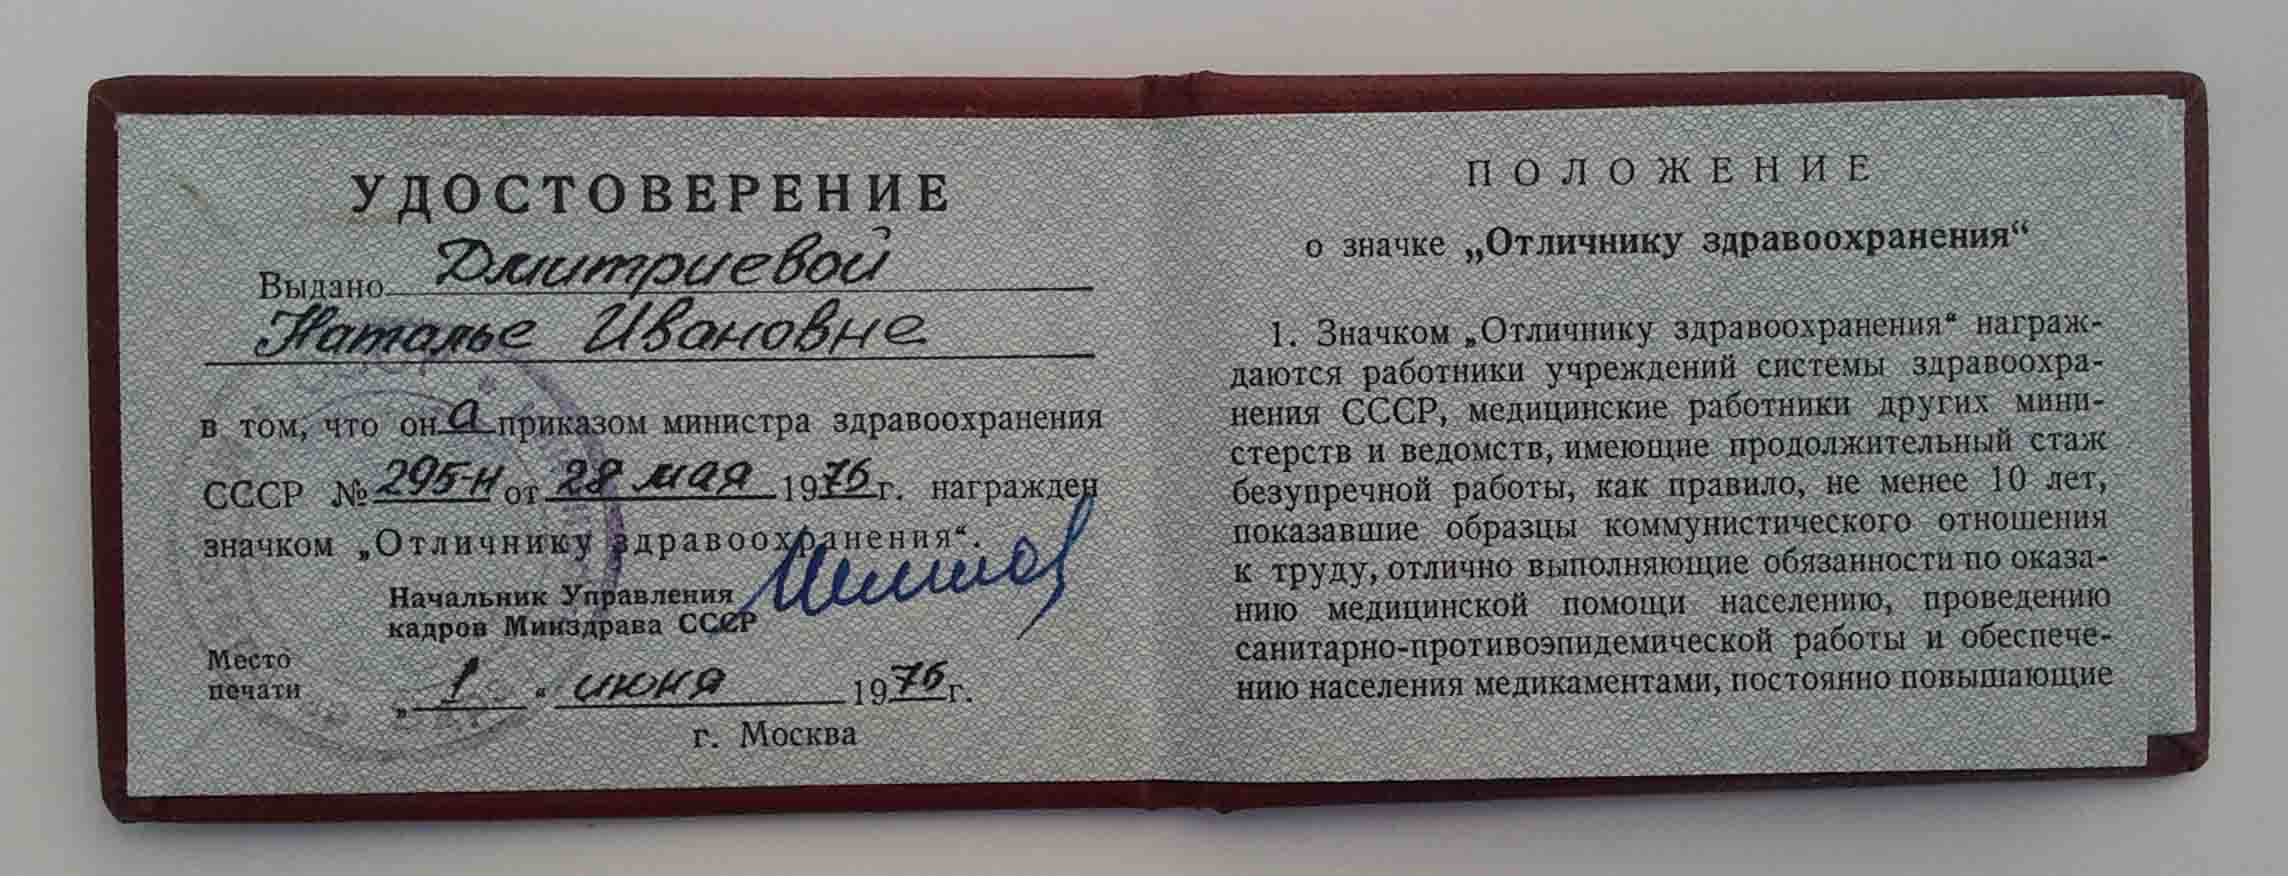 УДОСТОВЕРЕНИЕ
Выдано Дмитриевой
Наталье Ивановне
в том, что он а приказом министра здравоохранения
СССР № 295-н от 28 мая 1976 г. награжден
значком „Отличнику здравоохранения“.
Начальник Управления
кадров Минздрава СССР
Место
печати
„ 1 “ июня 1976 г.
г. Москва
ПОЛОЖЕНИЕ
о значке „Отличнику здравоохранения“
1. Значком „Отличнику здравоохранения“ награж-
даются работники учреждений системы здравоохра-
нения СССР, медицинские работники других мини-
стерств и ведомств, имеющие продолжительный стаж
безупречной работы, как правило, не менее 10 лет,
показавшие образцы коммунистического отношения
к труду, отлично выполняющие обязанности по оказа-
нию медицинской помощи населению, проведению
санитарно-противоэпидемической работы и обеспече-
нию населения медикаментами, постоянно повышающие